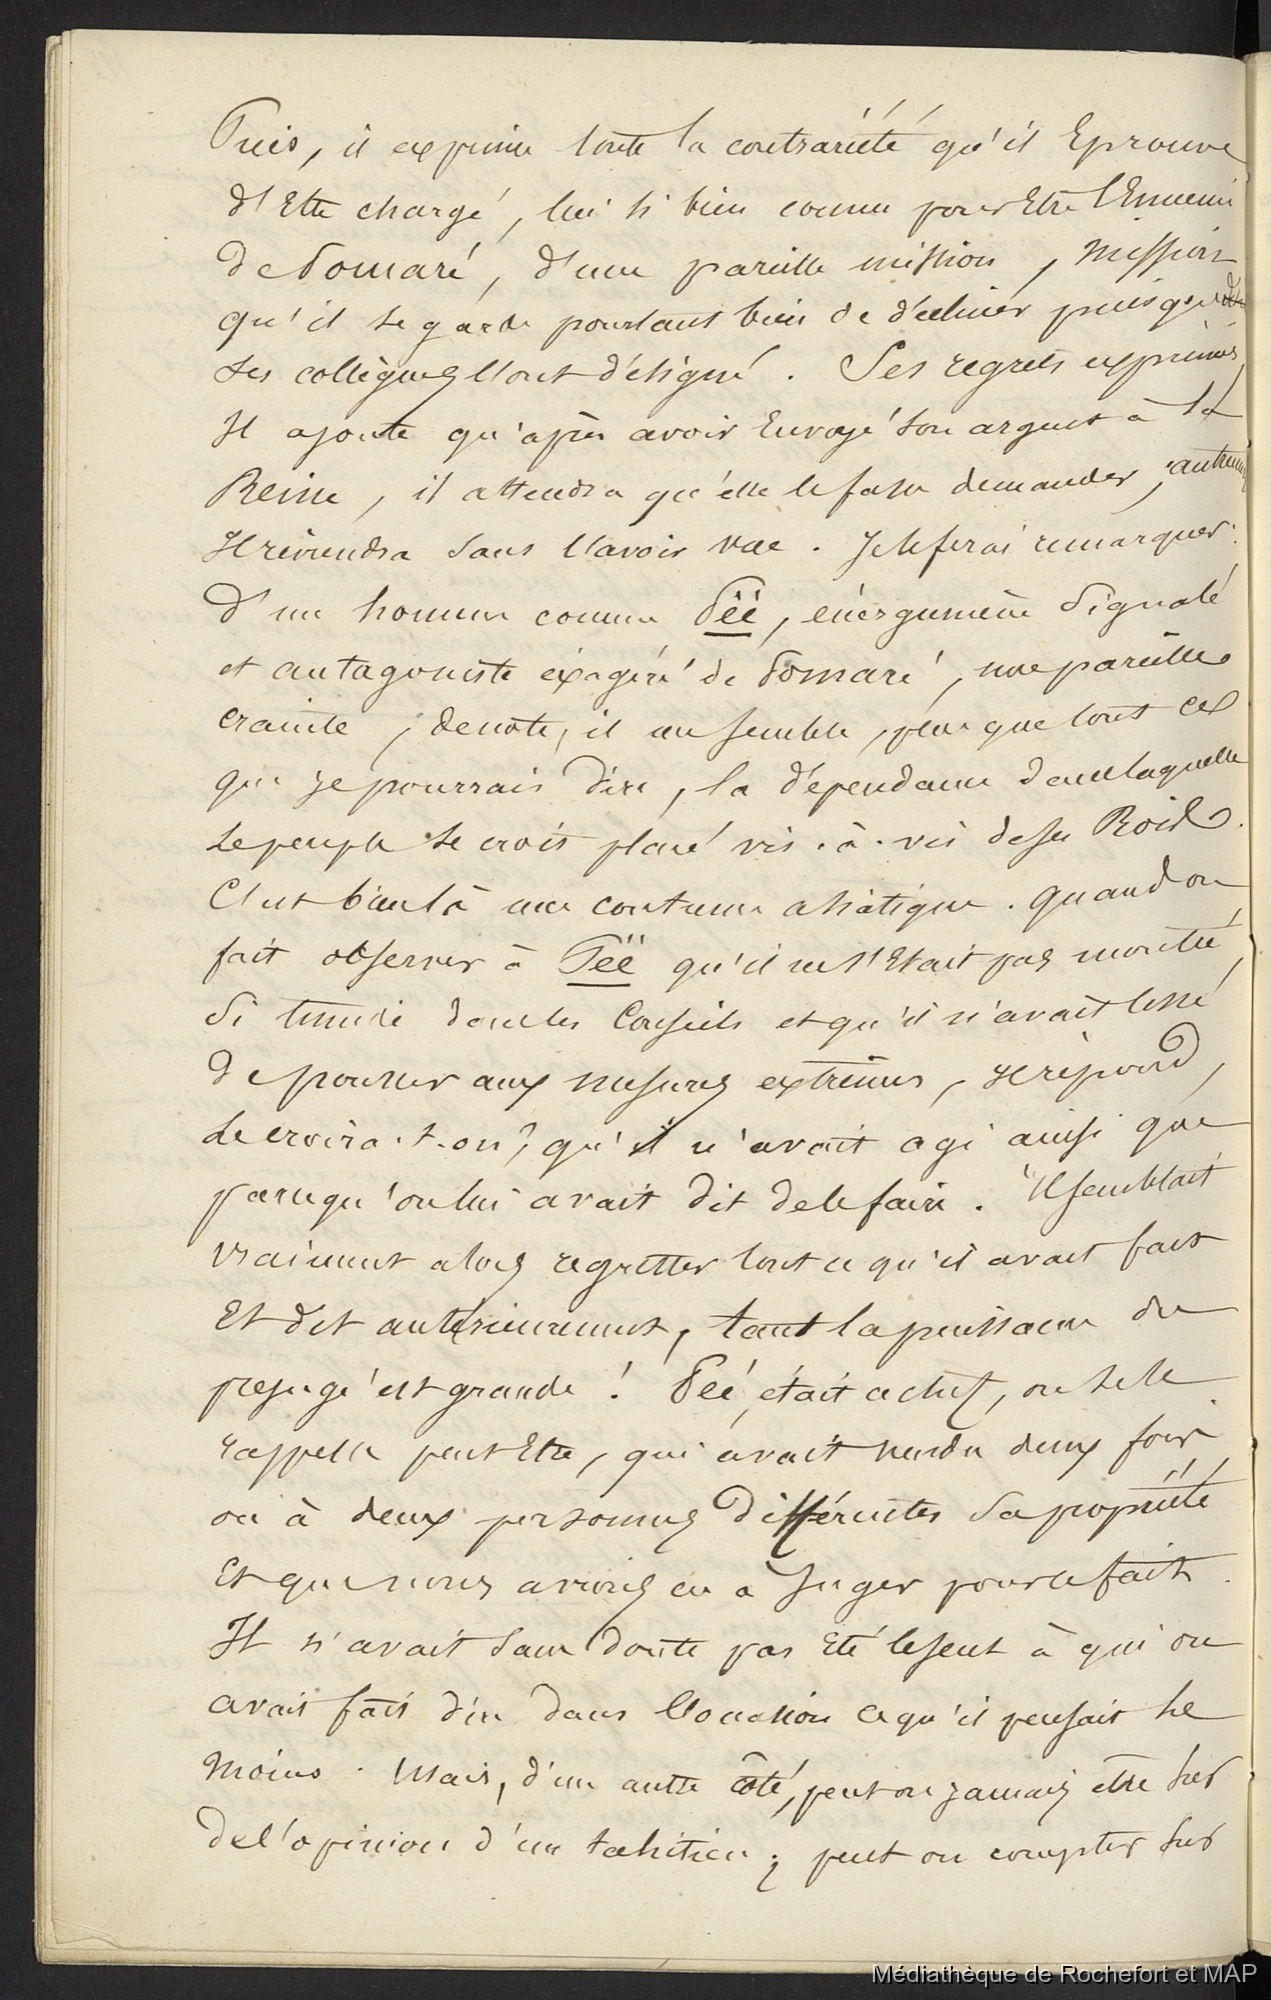 Puis, il exprime toute la contrariété qu'il Eprouve
d'Etre chargé, lui si bien connu pour Etre l'Ennemi
de Pomaré, d'une pareille mission, mission
qu'il se garde pourtant bien de décliner puisque
ses collègues l'ont désigné. Ses regrets exprimés,
Il ajoute qu'après avoir Envoyé son argent à la
Reine, il attendra qu'elle le fasse demander, autrement
Il reviendra sans l'avoir vue. Je le ferai remarquer:
D'un homme comme Péë, énergumène signalé
et antagoniste éxagéré de Pomaré, une pareille
crainte, denote, il me semble, plus que tout ce
que je pourrais dire, la dépendance dans laquelle
le peuple se croit placé vis-à-vis de ses Rois.
C'est bien là une coutume asiatique. quand on
fait observer à Péë qu'il ne s'Etait pas montré
si timide dans les Conseils et qu'il n'avait cessé
de pousser aux mesures extrêmes, il répond,
le croira-t-on, qu'il n'avait agi ainsi que
parcequ'on lui avait dit de le faire. Il semblait
vraiment alors regretter tout ce qu'il avait fait
Et dit antérieurement, tant la puissance du
préjugé est grande! Péé, était ce chef, on se le
rappelle peut Etre, qui avait vendu deux fois
ou à deux personnes différentes sa propriété
Et que nous avions eu à Juger pour ce fait.
Il n'avait sans doute pas Eté le seul à qui on
avait fait dire dans l'occasion ce qu'il pensait le
moins. Mais, d'un autre côté, peut on jamais être sur
de l'opinion d'un tahitien; peut on compter sur
Médiathèque de Rochefort et MAP